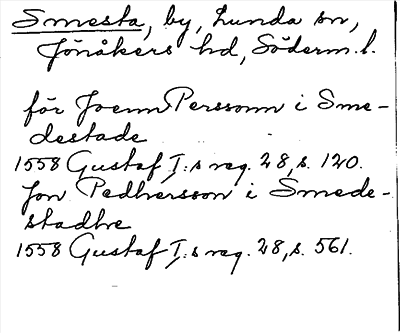 Smesta, by, Lunda sn,
Jönåkers hd, Söderm. l.
för Joenn Perssonn i Sme-
destade
1558 Gustaf I:s reg. 28, s. 120.
Jon Pedhersson i Smede-
stadhe
1558 Gustaf I:s reg. 28, s. 561.